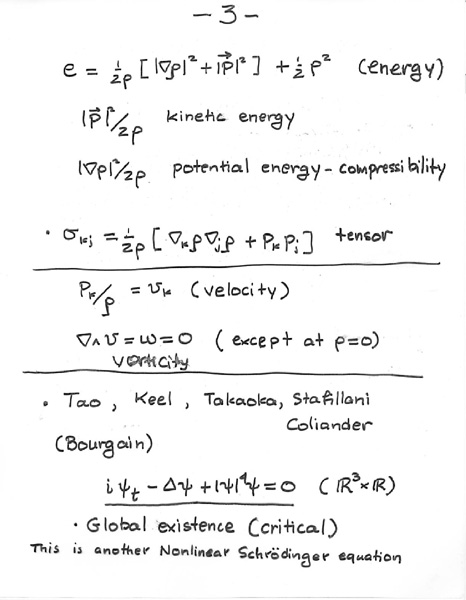 - 3 -
e = 1/2ρ [|∇ρ|² + |p⃗|²] + 1/2 ρ² (energy)
|p⃗|²/2ρ kinetic energy
|∇ρ|²/2ρ potential energy - compressibility
• σₖⱼ = 1/2ρ [∇ₖρ∇ⱼρ + PₖPⱼ] tensor
Pₖ/ρ = vₖ (velocity)
∇∧v = ω = 0 (except at ρ=0)
vorticity
• Tao, Keel, Takaoka, Stafillani
Coliander
(Bourgain)
iψₜ - Δψ + |ψ|⁴ψ = 0 (ℝ³×ℝ)
• Global existence (critical)
This is another Nonlinear Schrödinger equation